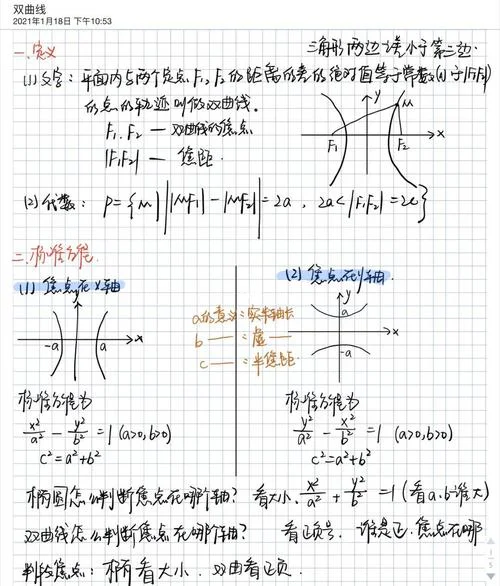 双曲线
2021年1月18日 下午10:53
一.定义
三角形两边之差小于第三边.
(1)文字: 平面内与两个定点F₁,F₂的距离的差的绝对值等于常数(小于|F₁F₂|)
的点的轨迹叫做双曲线.
F₁,F₂ — 双曲线的焦点
|F₁F₂| — 焦距.
y
M
F₁
F₂
x
(2)代数: P={M| |MF₁|-|MF₂| =2a, 2a<|F₁F₂|=2c}
二.标准方程.
(1) 焦点在x轴
(2) 焦点在y轴.
y
-a
a
x
a的意义:实半轴长
b — : 虚 —
c — : 半焦距.
y
a
-a
x
标准方程为
x²/a² - y²/b² = 1 (a>0,b>0)
c²=a²+b²
标准方程为
y²/a² - x²/b² = 1 (a>0,b>0)
c²=a²+b²
椭圆怎么判断焦点在哪个轴? 看大小. x²/a² + y²/b² =1 (看a.b谁大)
双曲线怎么判断焦点在哪个轴? 看正负号. 谁是正.焦点在哪
判段焦点: 椭看大小. 双曲看正负.